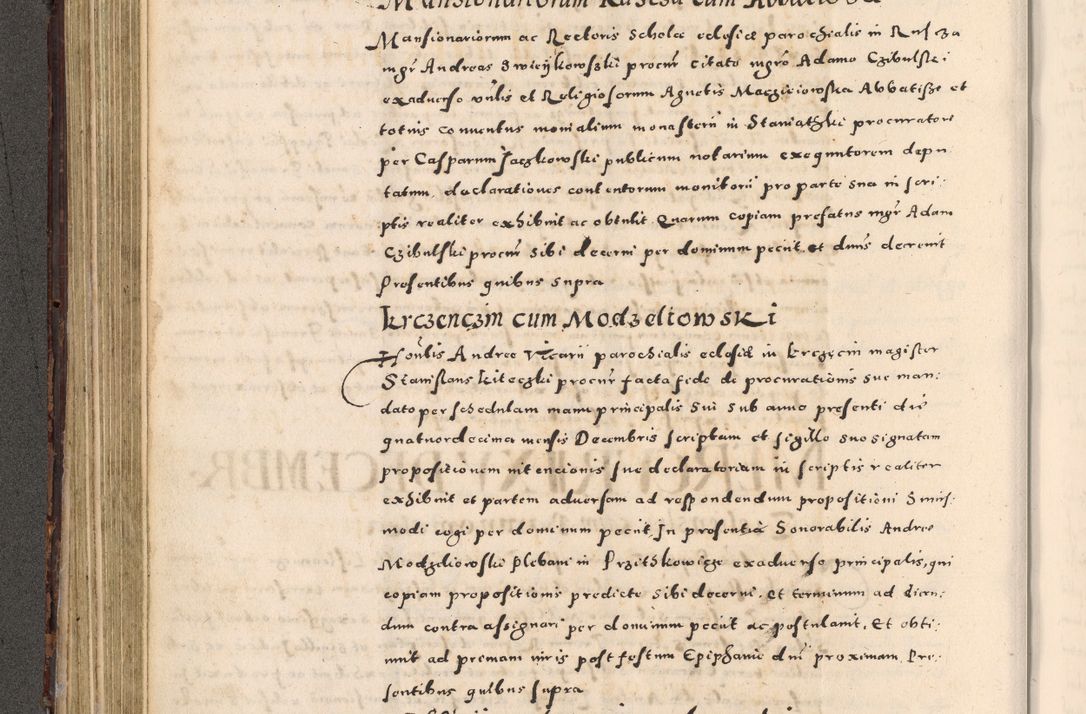 Mansionariorum ac Rectoris Scholae eclesiae parochialis in Rusza
mgr Andreas Swieykowszki procur citato mgro Adamo Czibulski
exaduerso vnlis et Religiosarum Agnetis Maczieiowska Abbatisze et
totius conuentus monialium monasterii in Staniatzki procuratore
per Casparum Jaczkowski publicum notarium exequutorem depu
tatum, declarationes contentorum monitorii pro parte sua in scri:
ptis realiter exhibuit ac obtulit Quarum copiam prefatus mgr Adam
Czibulski procur sibi decerni per dominum peciit. et dnus decreuit
Presentibus quibus supra
krczenczin cum Modzeliowski
Honlis Andree Vicarii parochialis eclesiae in krczęcin magister
Stanislaus kiteczki procur facta fide de procurationis sue man:
dato per schedulam manu principalis sui sub anno presenti die
quatuordecima mensis Decembris scriptam et sigillo suo signatam
propositionem intencionis sue declaratoriam in scriptis realiter
exhibuit et partem aduersam ad respondendum propositioni huius:
modi cogi per dominum peciit. In presentia honorabilis Andree
Modzeliowski plebani in Przithkowicze exaduerso principalis, qui
copiam propositionis predicte sibi decerni, et terminum ad dicen:
dum contra assignari per dominum peciit ac postulauit, Et obti:
nuit ad primam iuris post festum Epiphanie dni proximam. Pre:
sentibus quibus supra